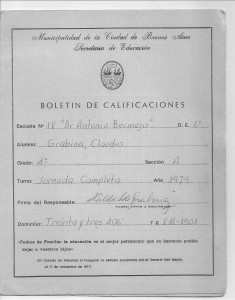 Municipalidad de la Ciudad de Buenos Aires
Secretaría de Educación
BOLETIN DE CALIFICACIONES
Escuela Nº 18 "Dr Antonio Bermejo" D. E. 6º
Alumno: Grabina, Claudio
Grado: 4º Sección A
Turno: Jornada Completa Año 1979
Firma del Responsable:
PADRE, TUTOR O ENCARGADO
Domicilio: Treinta y tres 406 T. E. 811-1501
«Padres de Familia: la educación es el mejor patrimonio que en herencia podéis
dejar a vuestros hijos»